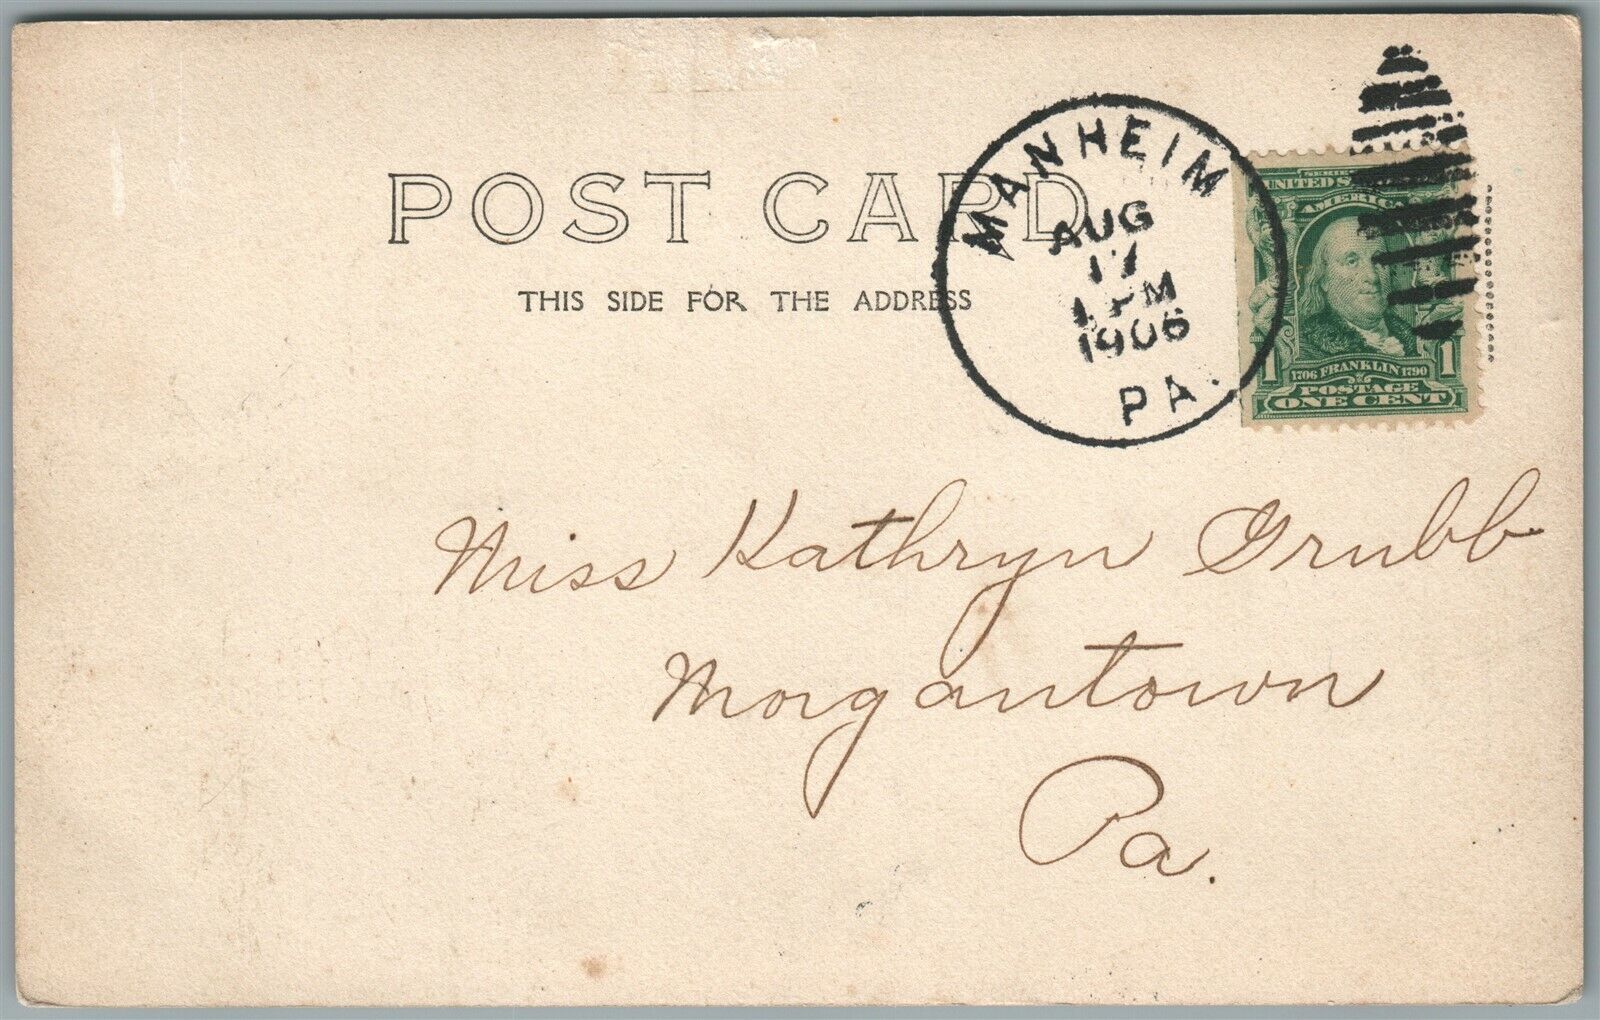 POST CARD
THIS SIDE FOR THE ADDRESS
MANHEIM
AUG
17
1 PM
1906
PA.
UNITED S
AMERICA
1706 FRANKLIN 1790
1 1
POSTAGE
ONE CENT
Miss Kathryn Grubb
Morgantown
Pa.